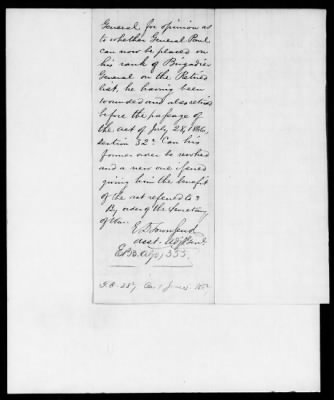 General, for opinion as
to whether General Paul
can now be placed on
his rank of Brigadier
General on the Retired
list, he having been
wounded and also retired
before the passage of
the act of July 28, 1866,
section 32? Can his
former order be revoked
and a new one issued
giving him the benefit
of the act referred to?
By order of the Secretary
of War.
E. D. Townsend
Asst. Adjt. Genl.
355.